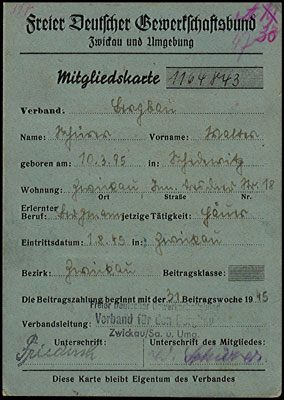 Freier Deutscher Gewerkschaftsbund
Zwickau und Umgebung
30
Mitgliedskarte 1164843
Verband. Bergbau
Name: Schürer Vorname: Walter
geboren am 10.3.95 in: Schedewitz
Wohnung: Zwickau, Str. 18
Ort Straße Nr.
Erlernter
Beruf: Bergmann jetzige Tätigkeit: Häuer
Eintrittsdatum: 1.8.45 in: Zwickau
Bezirk: Zwickau Beitragsklasse:
Die Beitragszahlung beginnt mit der 31 Beitragswoche 1945
Freier Deutscher Gewerkschaftsbund
Verbandsleitung: Verband für den Bergbau
Zwickau/Sa. u. Umg.
Unterschrift: Unterschrift des Mitgliedes:
Friedrich
Diese Karte bleibt Eigentum des Verbandes